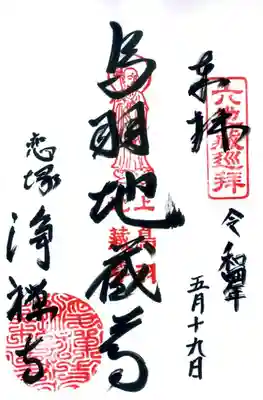 奉拝
六地蔵巡拝
令和四年
五月十九日
鳥羽地蔵尊
恋塚
浄禅寺